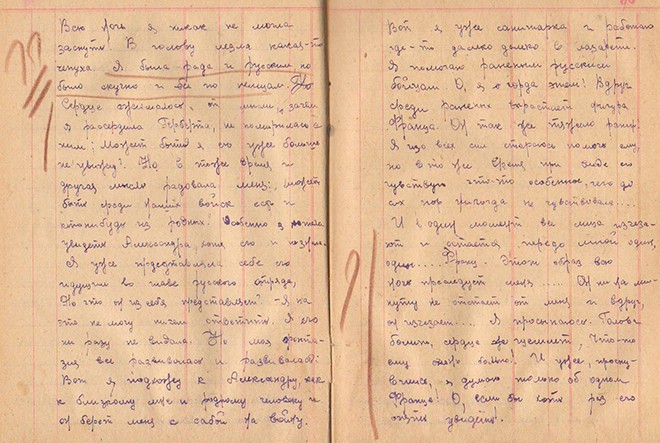 Всю ночь я никак не могла
заснуть. В голову лезла какая-то
чепуха. Я была рада и русским, но
было скучно и по немцам. Но
Сердце сжималось, от мысли, зачем
я рассердила Герберта, не помирилась с
ним; Может быть я его уже больше
не увижу? Но в тоже время и
другая мысль радовала меня: может
быть среди наших войск есть и
кто нибудь из родных. Особенно я
увидеть Александра, хотя его и
Я уже представляла себе его
идущим во главе русского отряда,
Но что он из себя представляет? - Я на
это не могу ничем ответить. Я его
ни разу не видала. Но моя фанта-
зия все развивалась и развивалась:
Вот я подхожу к Александру, как
к близкому мне и родному человеку и
он берет меня с собой на войну.
Вот я уже санитарка и работаю
где-то далеко далеко в лазарете.
Я помогаю раненым русским
бойцам. О, я горда этим! Вдруг
среди раненых вырастает фигура
Франца. Он так же тяжело ранен.
Я изо все сил стараюсь помочь ему,
но в то же время при виде его
чувствую что-то особенное, чего до
сих пор никогда не чувствовала....
И в один момент все лица изчеза-
ют и остается передо мной один,
один..... Франц. Этот образ всю
ночь преследует меня.... Он ни на ми-
нуту не отстает от меня и вдруг,
он изчезает.... Я просыпаюсь. Голова
болит, сердце как щемит, Что-то
ему очень больно! И уже просну-
вшись, я думаю только об одном
Франце! О, если бы хоть раз его
опять увидеть!